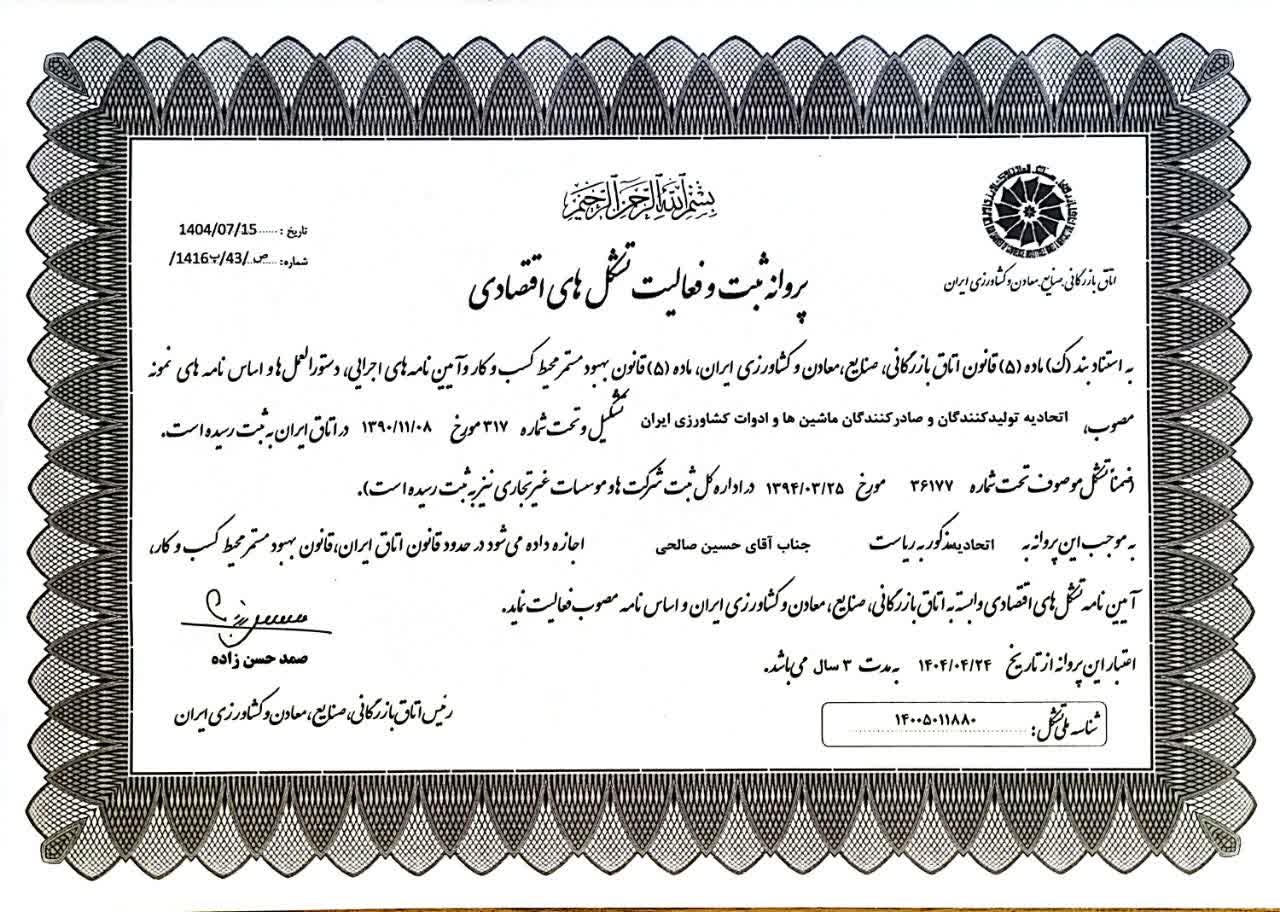 بسم الله الرحمن الرحیم
اتاق بازرگانی، صنایع، معادن و کشاورزی ایران
تاریخ : ......1404/07/15
شماره: ...ص../43/پ1416/
پروانه ثبت و فعالیت تشکل های اقتصادی
به استناد بند (ک) ماده (۵) قانون اتاق بازرگانی، صنایع، معادن و کشاورزی ایران، ماده (۵) قانون بهبود مستمر محیط کسب و کار و آیین نامه های اجرایی، دستورالعمل ها و اساس نامه های نمونه
مصوب، اتحادیه تولیدکنندگان و صادرکنندگان ماشین ها و ادوات کشاورزی ایران تشکیل و تحت شماره ۳۱۷ مورخ ۱۳۹۰/۱۱/۰۸ در اتاق ایران به ثبت رسیده است.
(ضمناً تشکل موصوف تحت شماره ۳۶۱۷۷ مورخ ۱۳۹۴/۰۳/۲۵ در اداره کل ثبت شرکت ها و موسسات غیرتجاری نیز به ثبت رسیده است).
به موجب این پروانه به اتحادیه مذکور به ریاست جناب آقای حسین صالحی اجازه داده می شود در حدود قانون اتاق ایران، قانون بهبود مستمر محیط کسب و کار،
آیین نامه تشکل های اقتصادی وابسته به اتاق بازرگانی، صنایع، معادن و کشاورزی ایران و اساس نامه مصوب فعالیت نماید.
اعتبار این پروانه از تاریخ ۱۴۰۴/۰۴/۲۴ به مدت ۳ سال می باشد.
صمد حسن زاده
رئیس اتاق بازرگانی، صنایع، معادن و کشاورزی ایران
شناسه ملی تشکل: ۱۴۰۰۵۰۱۱۸۸۰